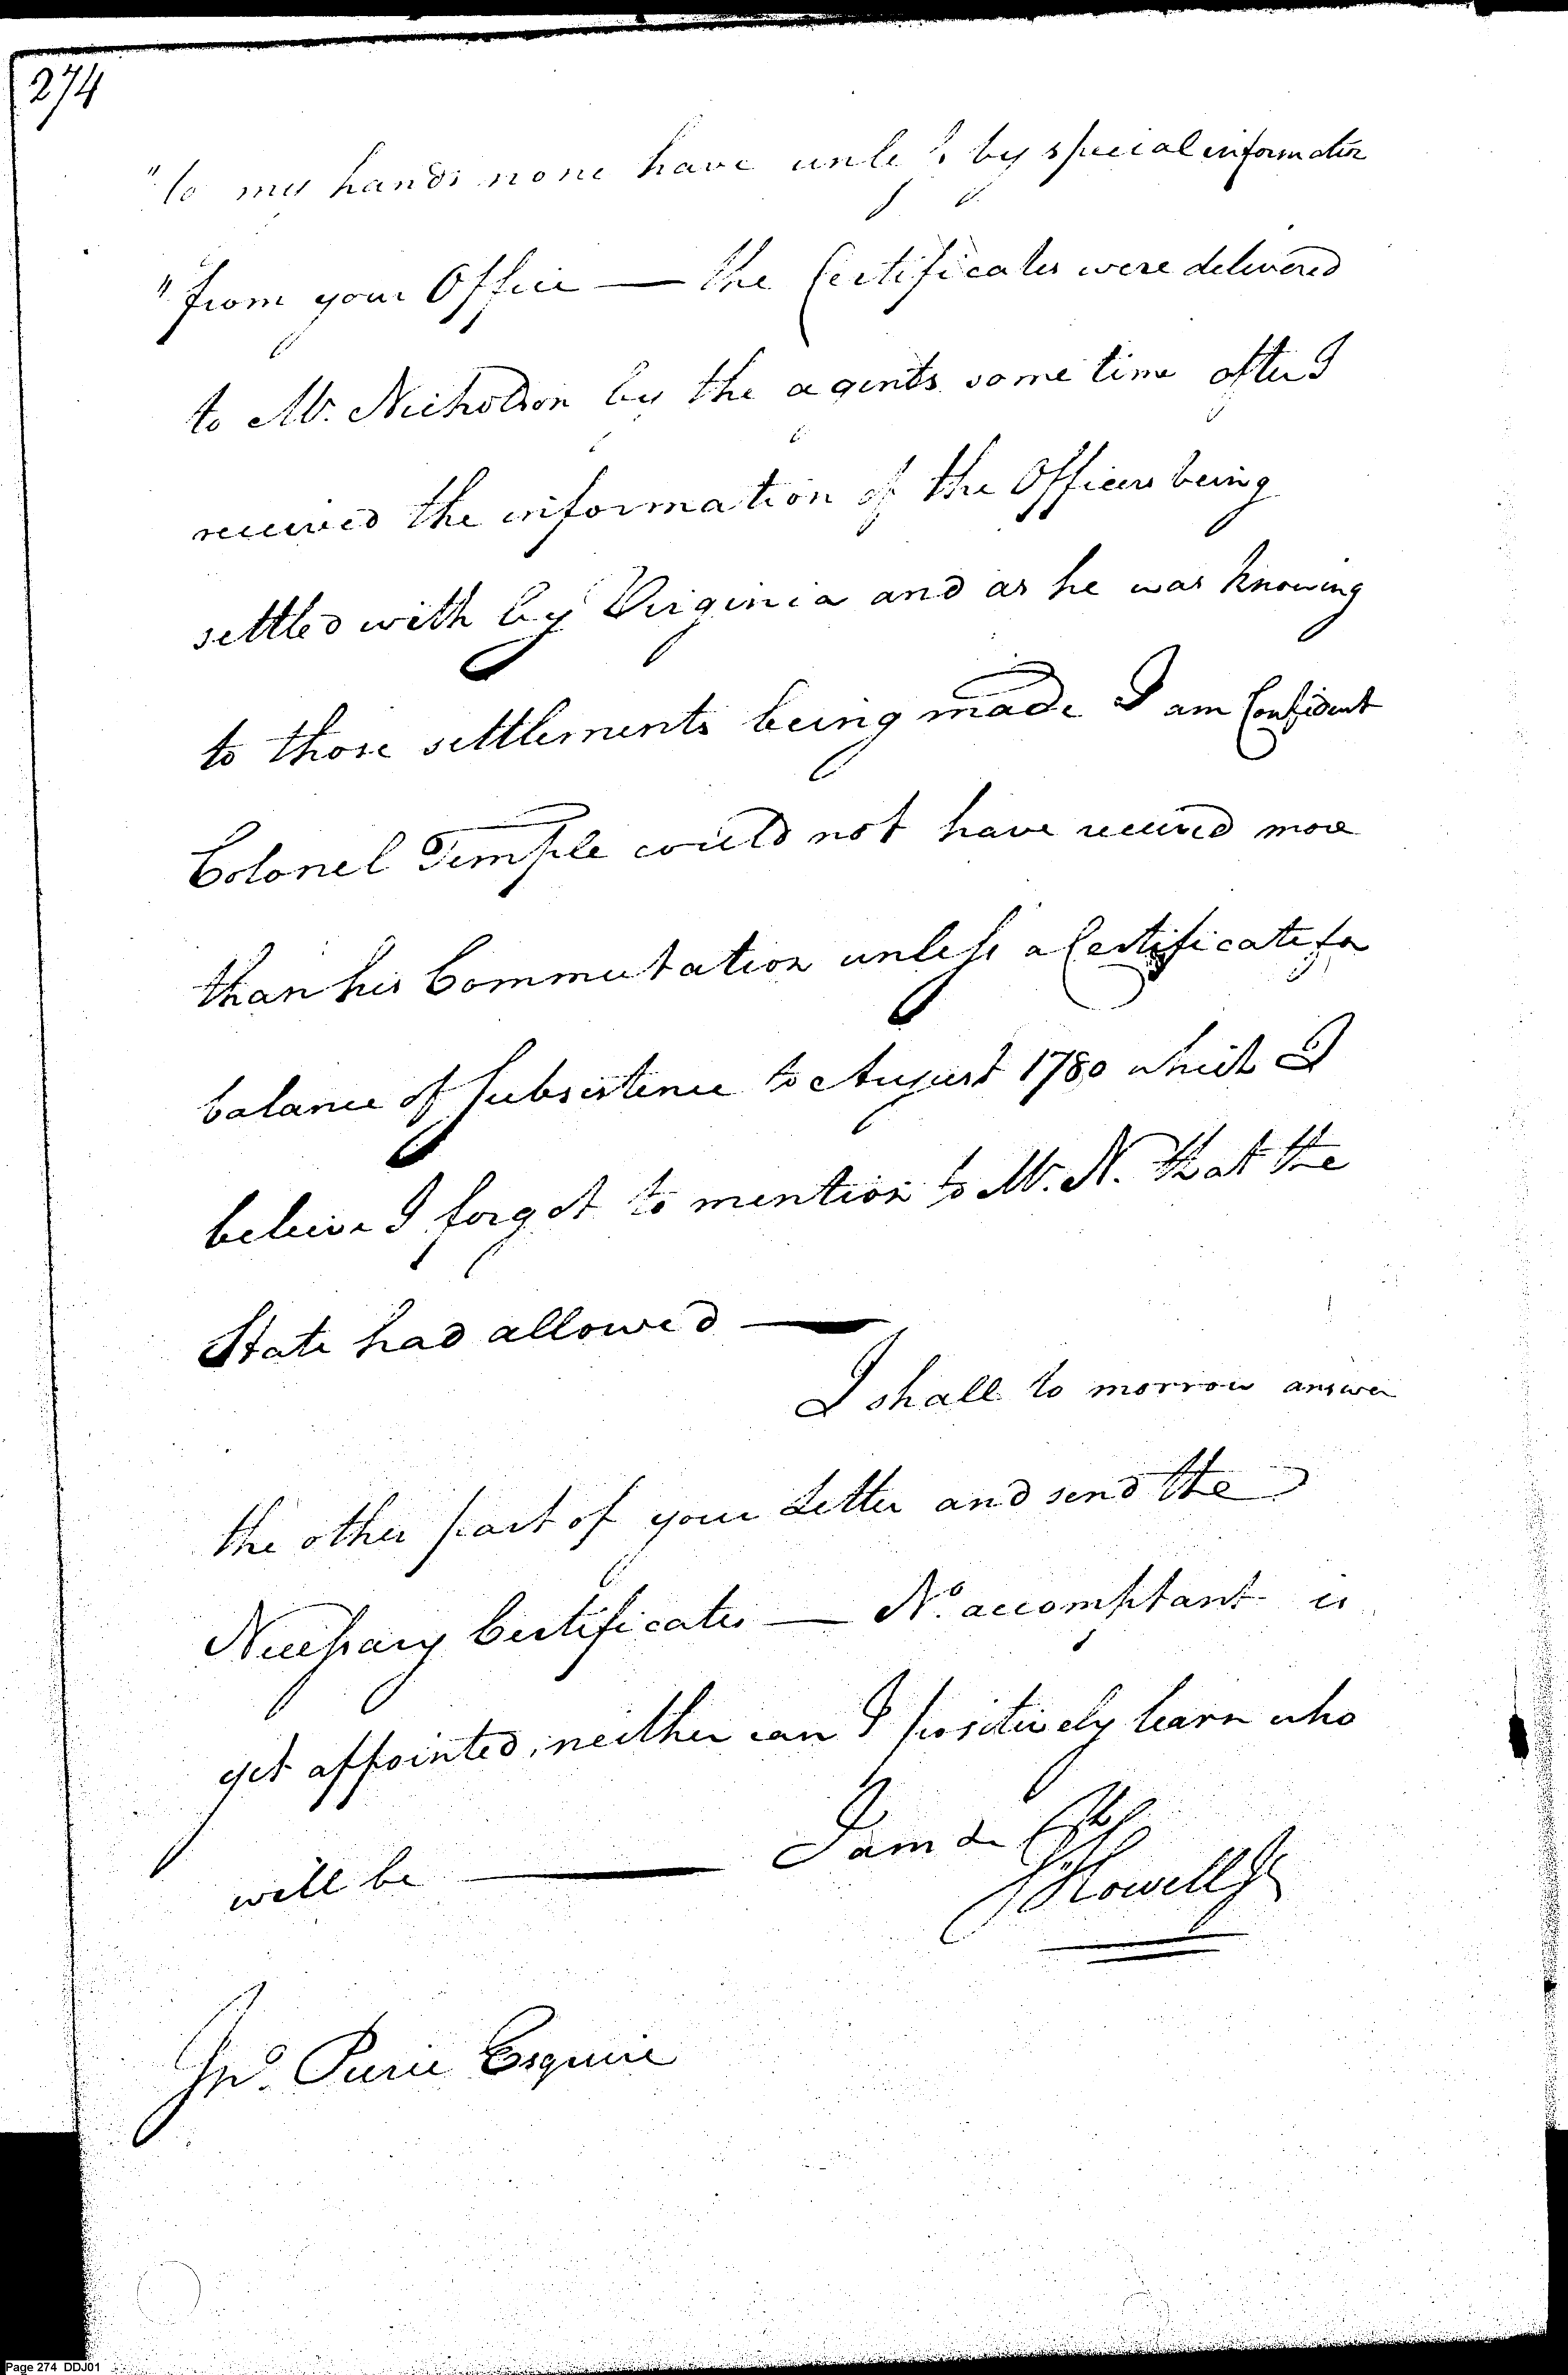 274
"to my hands none have unless by special information
"from your Office — the Certificates were delivered
to Mr. Nicholson by the agents some time after I
received the information of the Officers being
settled with by Virginia and as he was knowing
to those settlements being made I am Confident
Colonel Temple could not have received more
than his Commutation unless a Certificate for
balance of Subsistence to August 1780 which I
beleive I forgot to mention to Mr. N. that the
State had allowed —
I shall to morrow answer
the other part of your Letter and send the
Necessary Certificates — No accomptant is
yet appointed, neither can I positively learn who
will be — I am &
J Howell Jr
Jno. Pierce Esquire
Page 274 DDJ01